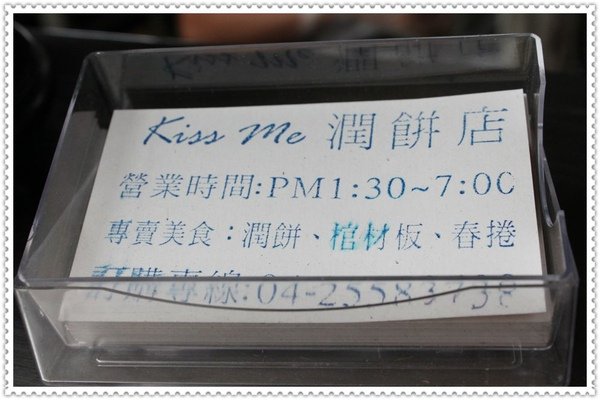 Kiss Me 潤餅店
營業時間:PM1:30~7:00
專賣美食：潤餅、棺材板、春捲
訂購專線:04-25583738